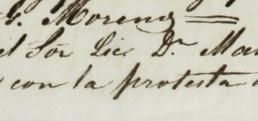 G. Moreno
el Sor Lic Dn Man
con la protesta